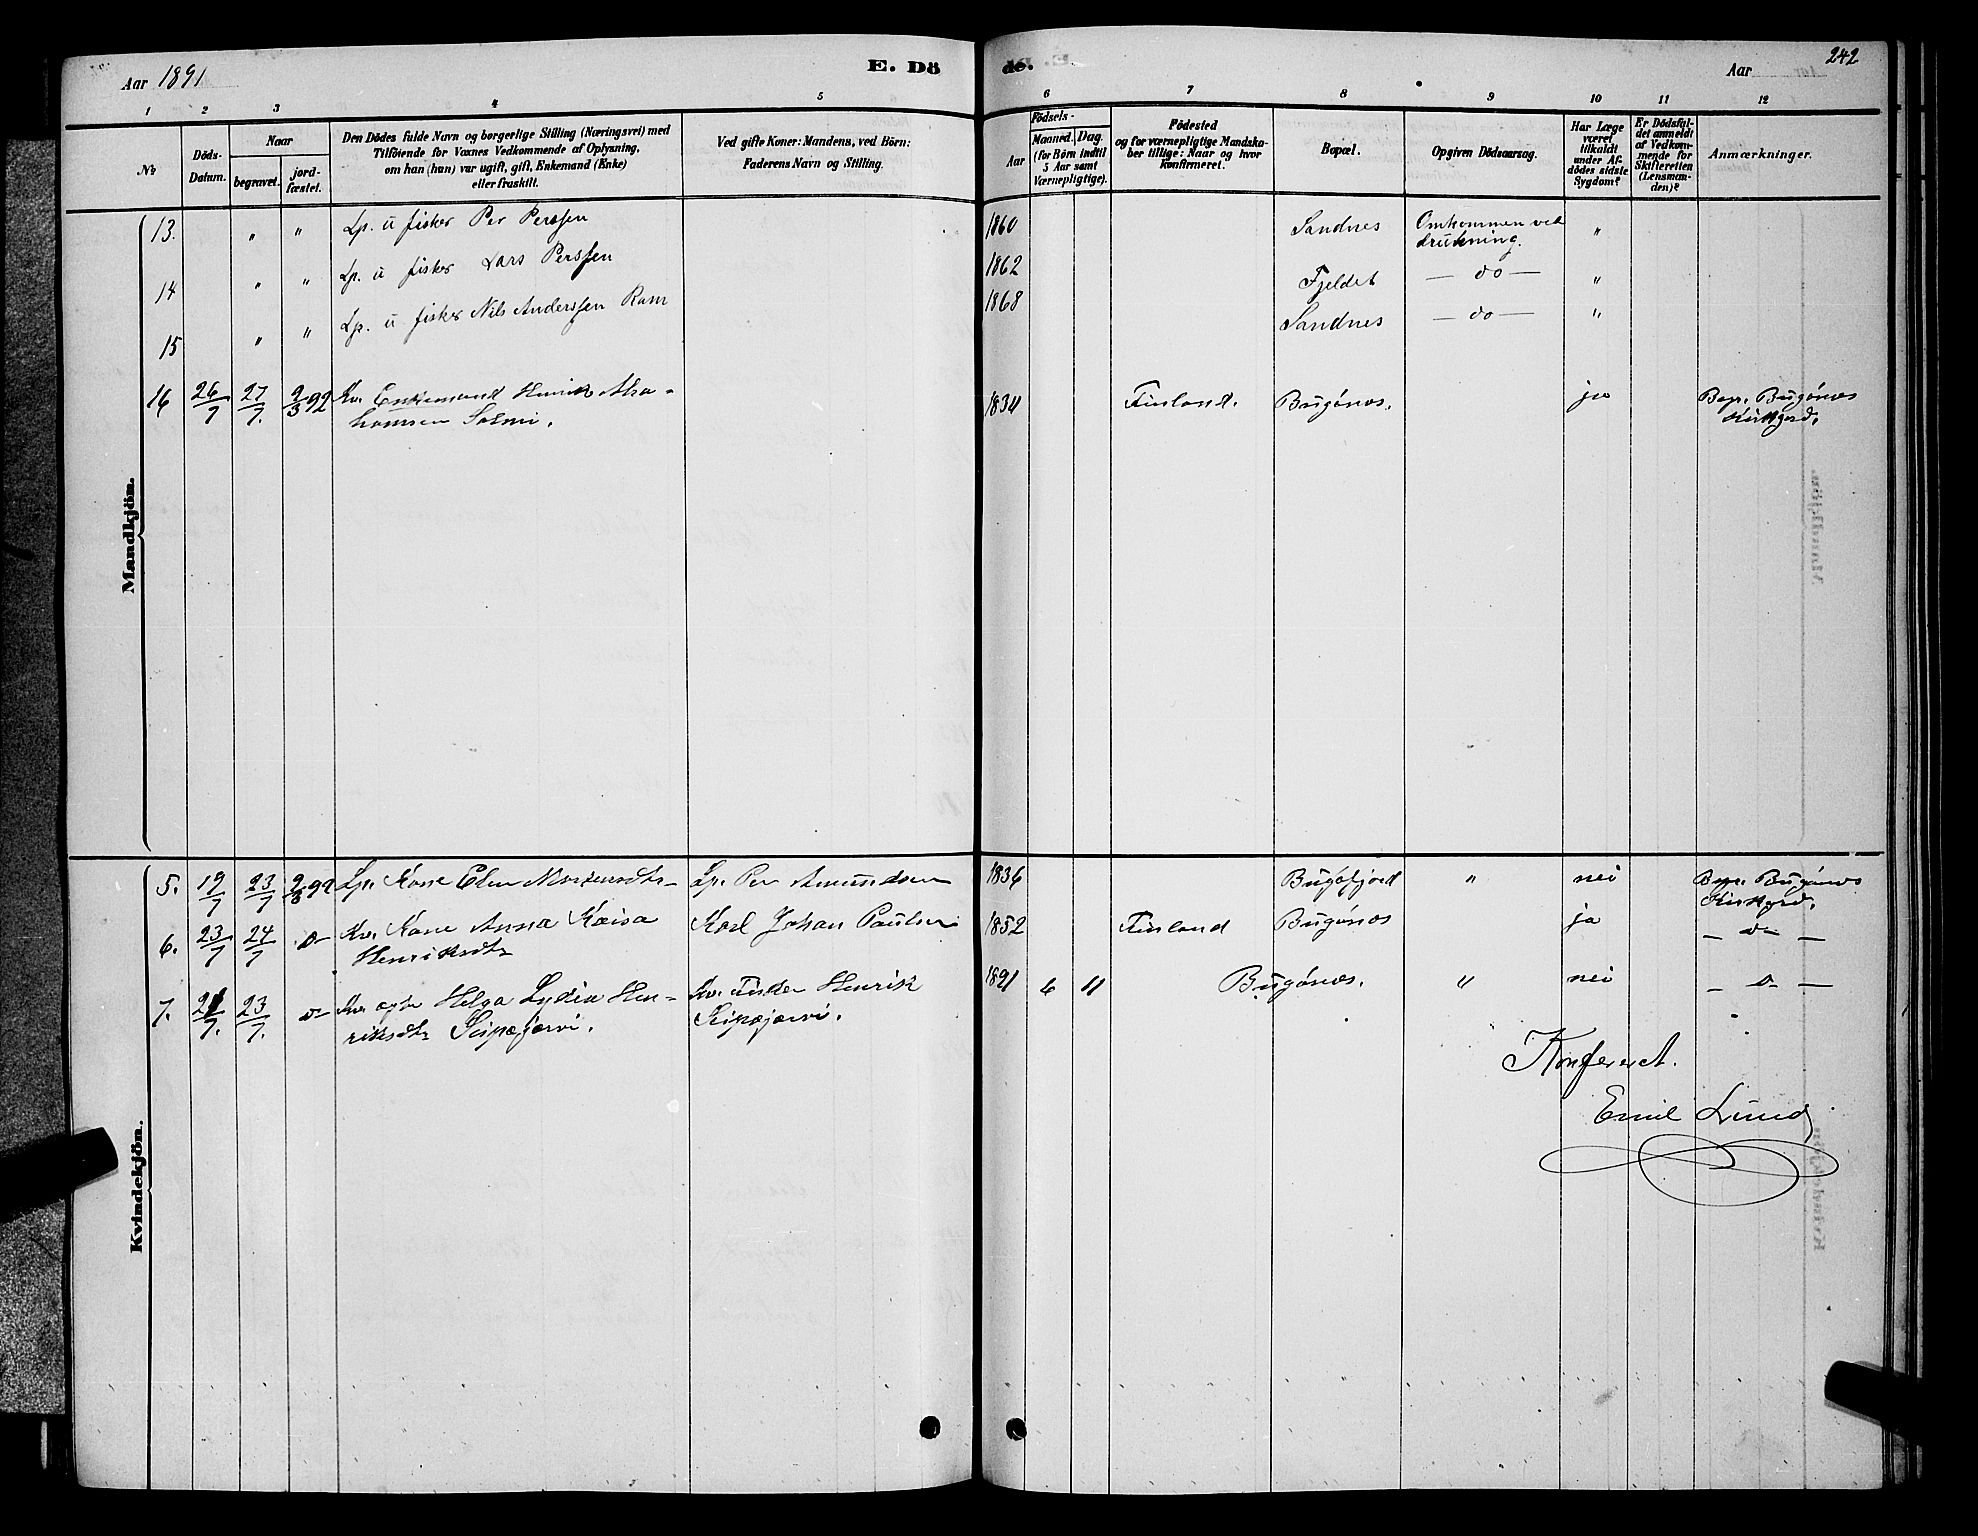 Aar 1891
E. Dö
de.
Aar
242
1 2 3 4 5 6 7 8 9 10 11 12
No
Döds-
Datum.
Naar
begravet.
jord-
fæstet.
Den Dödes fulde Navn og borgerlige Stilling (Næringsvei) med
Tilföiende for Voxnes Vedkommende af Oplysning,
om han (hun) var ugift, gift, Enkemand (Enke)
eller fraskilt.
Ved gifte Koner: Mandens, ved Börn:
Faderens Navn og Stilling.
Födsels-
Aar
Maaned. Dag.
(for Börn indtil
5 Aar samt
Værnepligtige).
Födested
og for værnepligtige Mandska-
ber tillige: Naar og hvor
konfirmeret.
Bopæl.
Opgiven Dödsaarsag.
Har Læge
været
tilkaldt
under Af-
dödes sidste
Sygdom?
Er Dödsfal-
det anmeldt
af Vedkom-
mende for
Skifteretten
(Lensman-
den)?
Anmærkninger.
Mandkjön.
13. " " Lp. u fisker Per Perssen 1860 Sandnes Omkommen ved
drukning. "
14 " " Lp. u fisker Lars Perssen 1862 Fjeldet — do — "
15 " " Lp. u fisker Nils Anderssen Ram 1868 Sandnes — do — "
16 26/7 27/7. 2/3 92 Kv. Enkemand Henrik Abra-
hamsen Salmi. 1834 Finland. Bugönæs. ja Begr. Bugönæs
Kirkgrd.
Kvindekjön.
5. 19/7 23/7 2/3 92 Lp. Kone Elen Mortensdtr Lp. Per Amundsen 1836 Bugöfjord " nei Begr. Bugönæs
Kirkgrd.
6. 23/7 24/7 do Kv. Kone Anna Kaisa Karl Johan Paulsen 1852 Finland Bugönæs ja — do —
Henriksdtr
7. 21/7. 23/7. do Kv. ægte Helga Lydia Hen- Kv. Fisker Henrik 1891 6 11 Bugönæs. " nei — do —
riksdtr Seipæjærvi. Seipæjærvi.
Konfereret.
Emil Lund